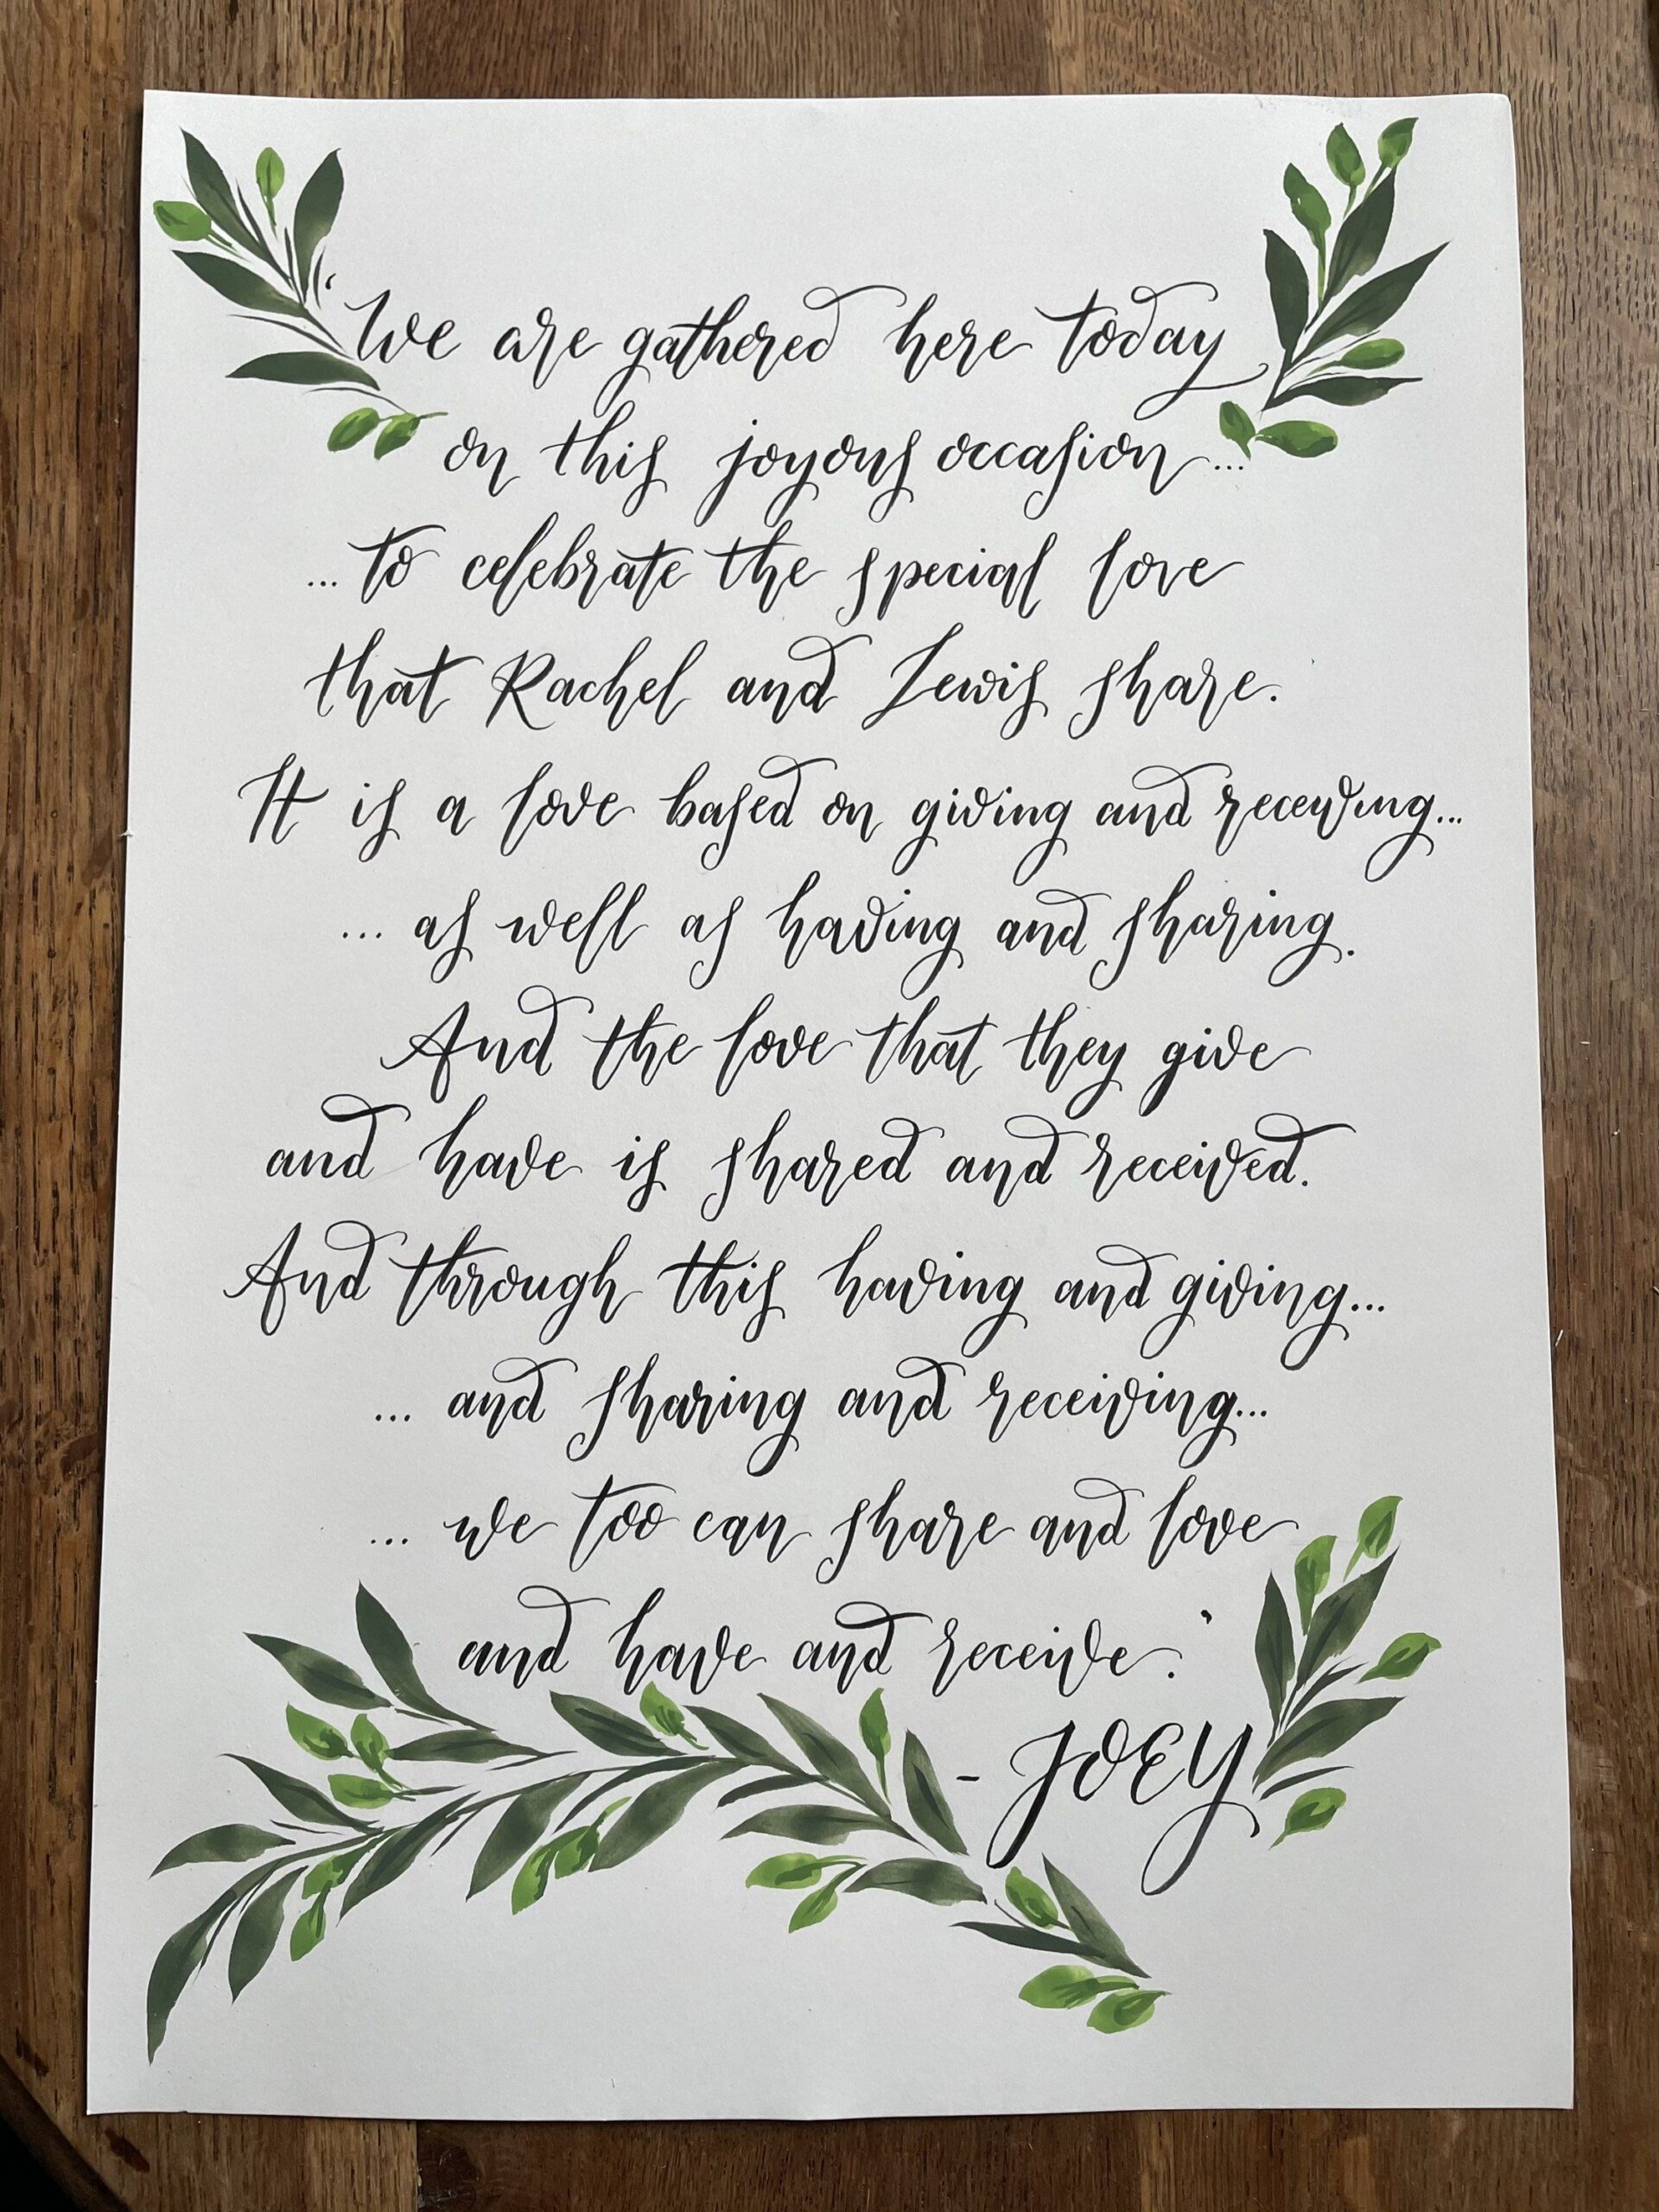 'We are gathered here today
on this joyous occasion...
... to celebrate the special love
that Rachel and Lewis share.
It is a love based on giving and receiving...
... as well as having and sharing.
And the love that they give
and have is shared and received.
And through this having and giving...
... and sharing and receiving...
... we too can share and love
and have and receive.'
- JOEY